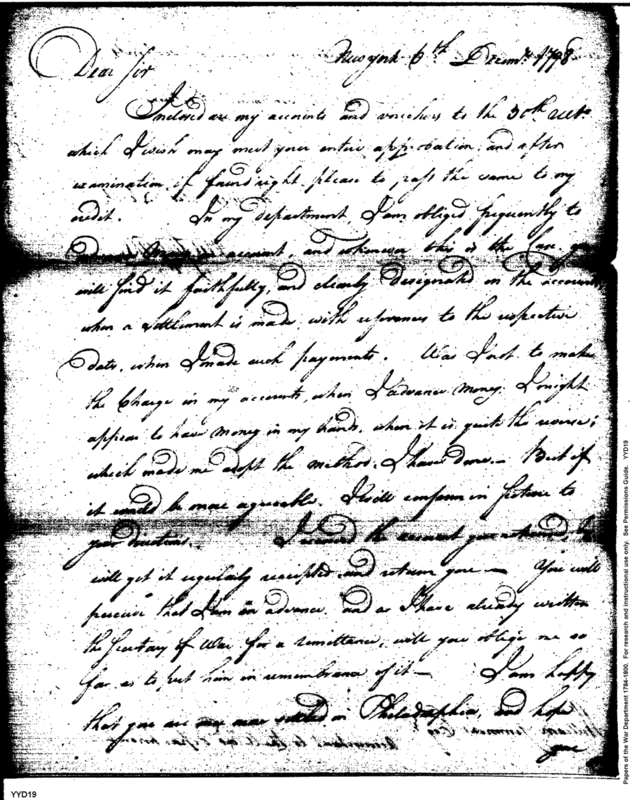 New york 6th Decemr. 1798
Dear Sir
Inclosed are my accounts and vouchers to the 30th Ult.
which I wish may meet your entire approbation, and after
examination, if found right, please to pass the same to my
credit. In my department, I am obliged frequently to
advance account, and whenever this is the Case, you
will find it faithfully, and clearly designated on the accounts
when a settlement is made, with references to the respective
date, when I made such payments. Was I not to make
the Charge in my accounts, when I advance money, I might
appear to have money in my hands, when it is quite the reverse;
which made me adopt the method, I have done.— But if
it would be more agreeable, I will conform in future to
your directions. I received the account you returned,
will get it regularly receipted and return you — You will
perceive that I am in advance, and as I have already written
the Secretary of War for a remittance, will you oblige me so
far as to put him in remembrance of it — I am happy
that you are now settled in Philadelphia, and hope
you
Papers of the War Department 1784-1800. For research and instructional use only. See Permissions Guide. YYD19
YYD19